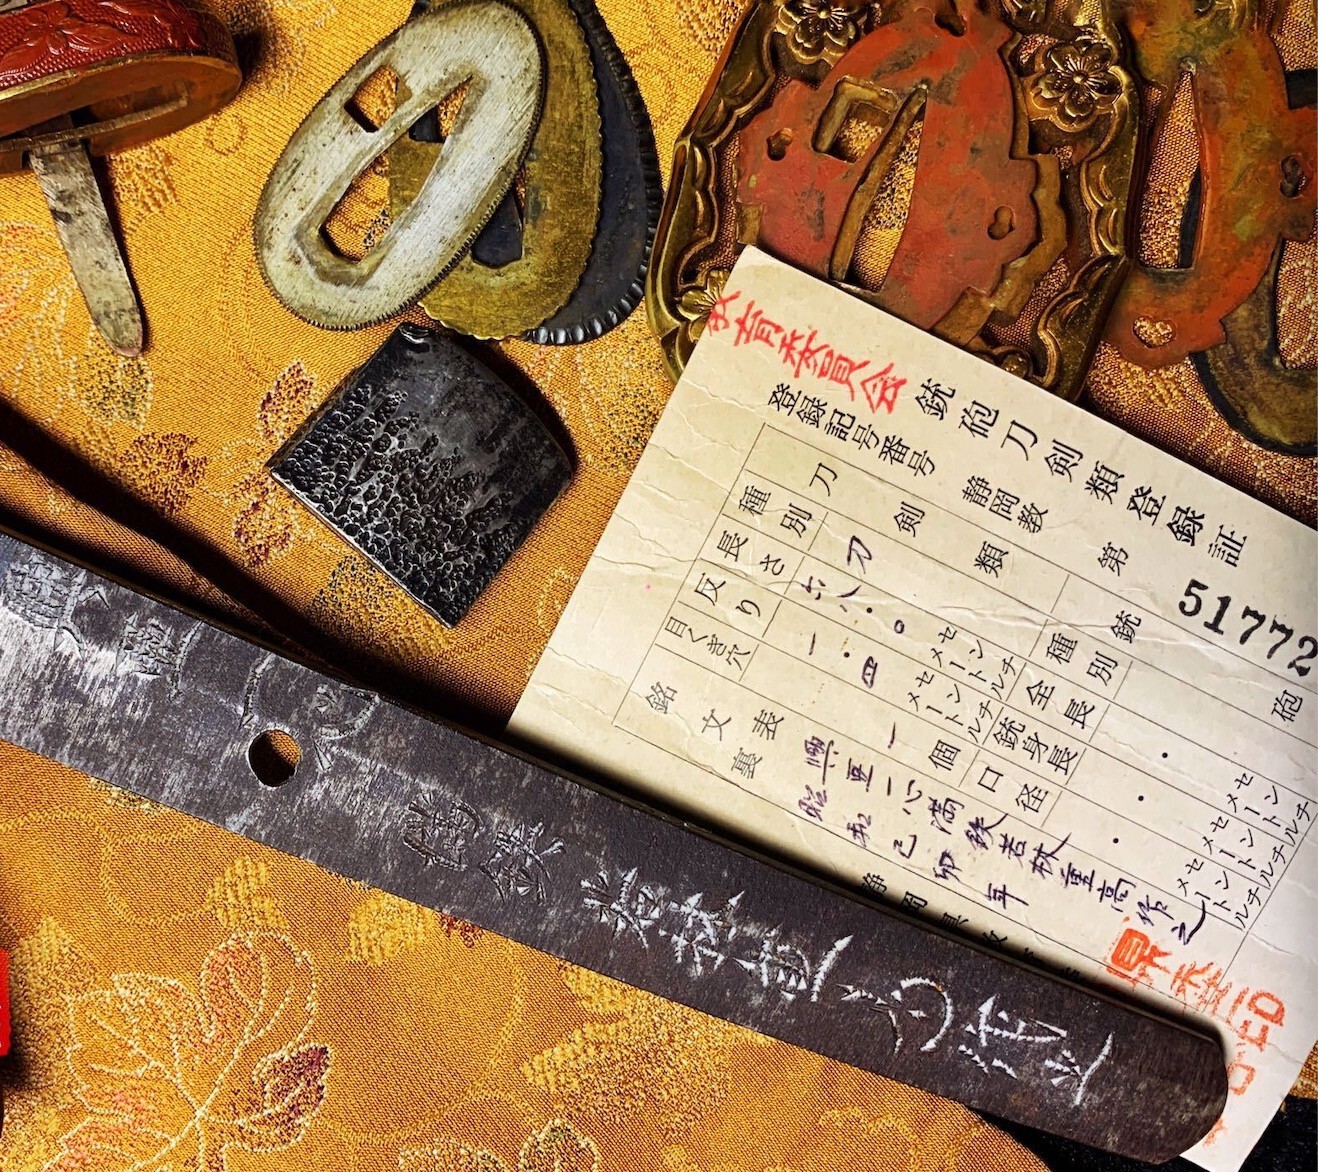 教育委員会
銃砲刀剣類登録証
登録記号番号 静岡教 第 51772
刀剣類 銃砲
種別 刀 種別
長さ 六八.〇 センチメートル 全長 . センチメートル
反り 一.四 センチメートル 銃身長 . センチメートル
目くぎ穴 一 個 口径 . センチメートル
銘文 表 興亜一心満鉄若林重高作之
裏 昭和己卯年
滿鐵若林重高作之